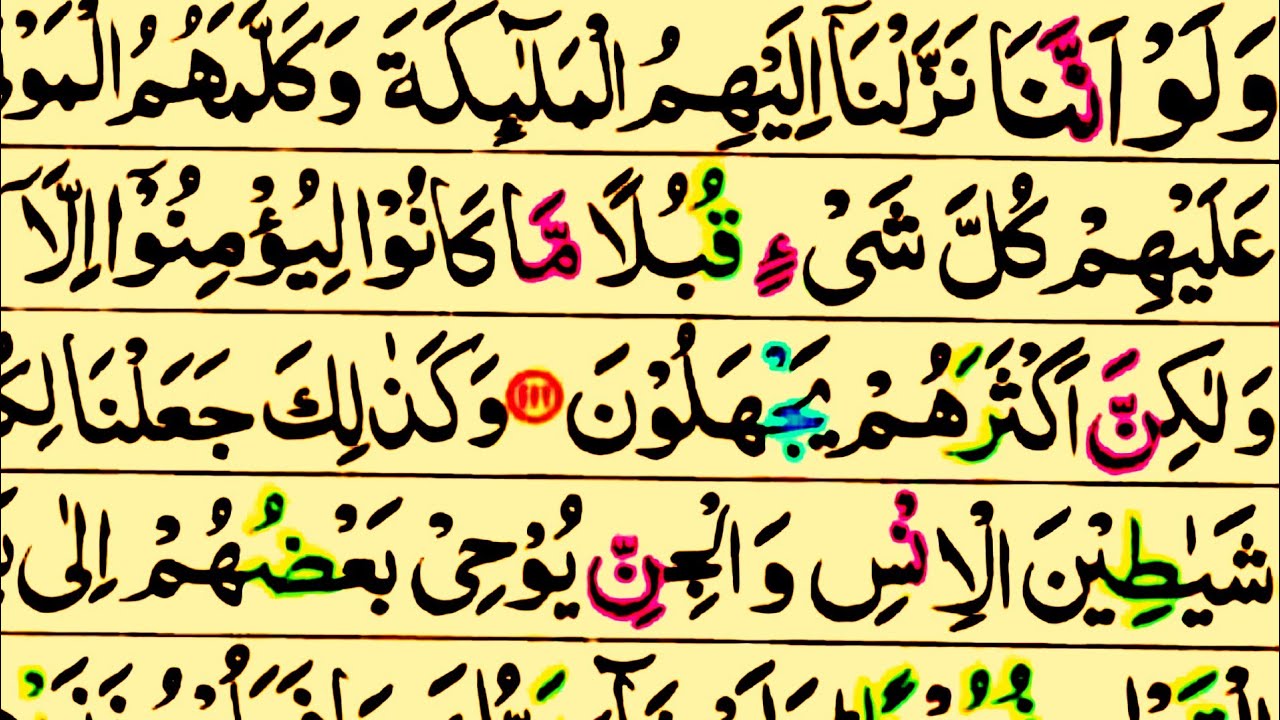 وَلَوْ اَنَّنَا نَزَّلْنَاۤ اِلَيْهِمُ الْمَلٰٓئِكَةَ وَكَلَّمَهُمُ
عَلَيْهِمْ كُلَّ شَیْءٍ قُبُلًا مَّا كَانُوْا لِيُؤْمِنُوْۤا اِلَّاۤ
وَلٰكِنَّ اَكْثَرَهُمْ يَجْهَلُوْنَ ۝١١١ وَكَذٰلِكَ جَعَلْنَا
شَيٰطِيْنَ الْاِنْسِ وَالْجِنِّ يُوْحِیْ بَعْضُهُمْ اِلٰی